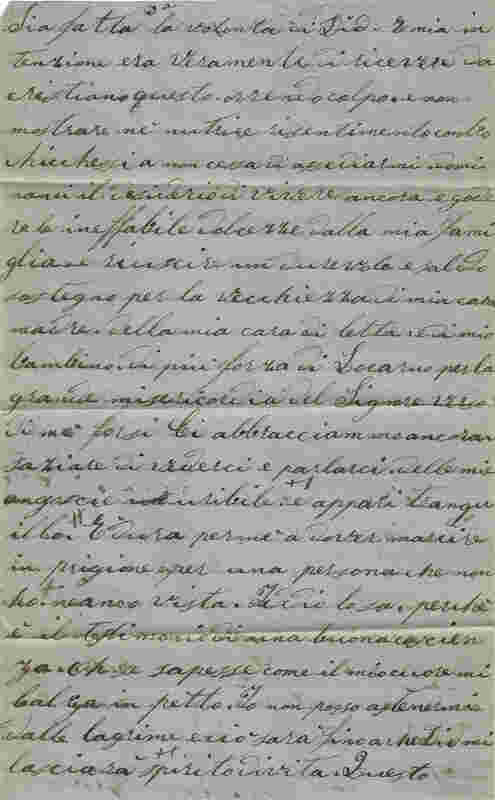 Sia fatta la volonta di Dio. E mia in
tenzione era veramente di ricevere da
cristiano questo orrendo colpo e non
mostrare ne nutrire risentimento contro
chichessia non cessa di assediarmi
il desiderio di vivere ancora e gode
re le ineffabile dolcezze dalla mia fami
glia e riuscire un durevole e saldo
sostegno per la vecchiezza di mia cara
madre della mia cara di letta e di mio
bambino di piu forza di per la
grande misericordia del Signore verso
di me forsi ci abbracciammo ancora
saziare di vederci e parlarci delle mie
angoscie e appari tranqu
illo. E dura per me a dover marcire
in prigione per una persona che non
ho manco vista. Iddio lo sa. perche
è il testimonio di una buona coscien
za. Oh se sapesse come il mio cuore mi
balza in petto. Io non posso astenermi
dalle lagrime e cio sara finache Dio mi
lasciera spirito di vita. Questo